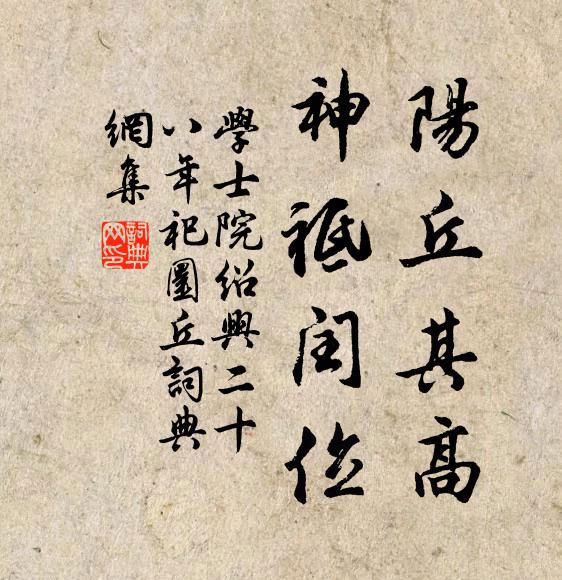 陽丘其高
神祗闰位
學士院绍興二十
八年祀圜丘詞典
網集
詞典
网印